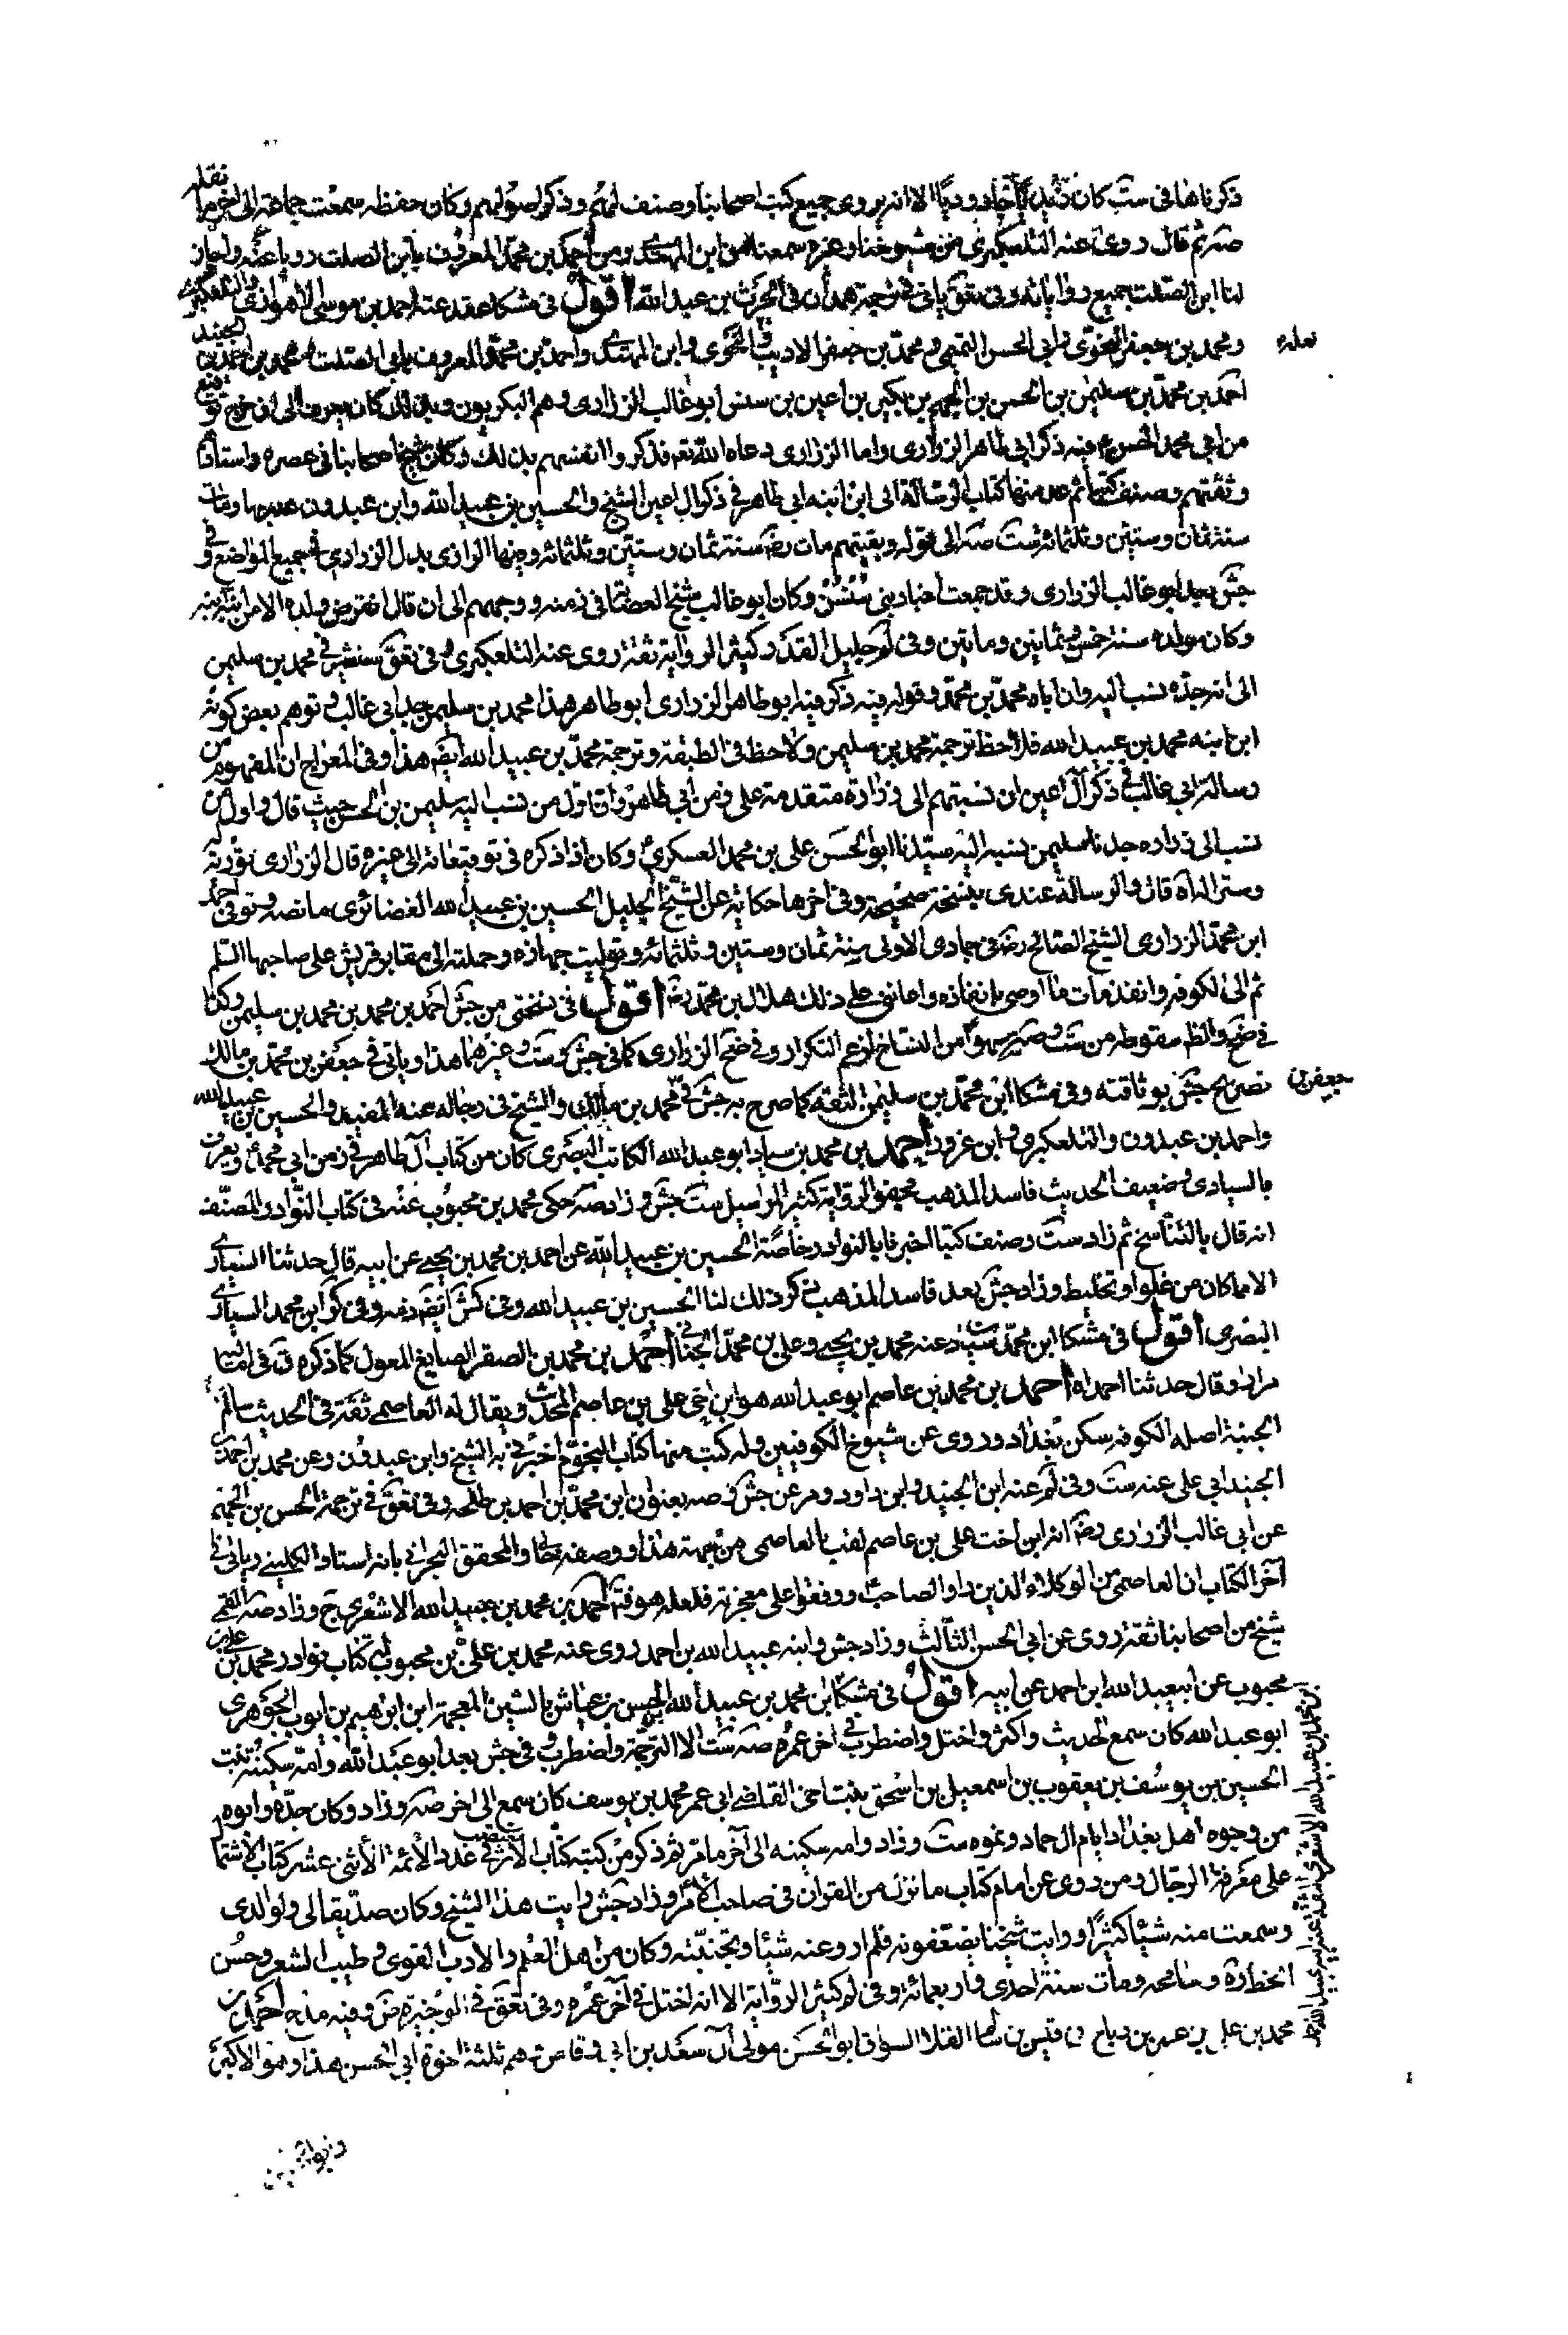 ذكرناها في ست كان زيديا جاروديا الا انه يروي جميع كتب اصحابنا وصنف لهم وذكر اصولهم وكان حفظه سمعت جماعة الى اخر ما نقله
صه ثم قال روى عنه التلعكبري من شيوخنا وغيره سمعنا من ابن المهتدي ومن احمد بن محمد المعروف بابن الصلت رويا عنه واجاز
لنا ابن الصلت جميع رواياته وفي تعق ياتي في ترجمة همدان في الحرث بن عبد الله اقول في مشكا عقد عنه احمد بن موسى الاهوازي والتلعكبري
ومحمد بن جعفر النحوي وابي الحسن التميمي ومحمد بن جعفر الاديب والنحوي وابن المهتدي واحمد بن محمد المعروف بابي الصلت ومحمد بن احمد بن الجنيد
احمد بن محمد بن سليمن بن الحسن بن الجهم بن بكير بن اعين بن سنسن ابو غالب الزراري وهم البكريون وبذلك كان يعرف الى ان خرج توقيع
من ابي محمد الحسن ع فيه ذكر ابي طاهر الزراري واما الزراري رعاه الله تعه فذكروا انفسهم بذلك وكان شيخ اصحابنا في عصره واستاذهم
وثقتهم وصنف كتبا ثم عد منها كتاب الرسالة الى ابن ابنه ابي طاهر في ذكر ال اعين الشيخ والحسين بن عبيد الله وابن عبدون عنه بها ومات
سنة ثمان وستين وثلثمائة ست صه الى قوله وبقيتهم مات رضه سنة ثمان وستين وثلثمائة وفيها الرازي بدل الزراري في جميع المواضع وفي
جش بعد ابو غالب الزراري وقد جمعت اخبار بني سنسن وكان ابو غالب شيخ العصابة في زمنه ووجههم الى ان قال انقرض ولده الا من ابنة ابنه
وكان مولده سنة خمس وثمانين ومايتين وفي لم جليل القدر كثير الرواية ثقة روى عنه التلعكبري وفي تعق سنشير في محمد بن سليمن
الى انه جده نسب اليه وان اباه محمد بن محمد وقوله فيه ذكر فيه ابو طاهر الزراري ابو طاهر هذا محمد بن سليمن جد ابي غالب وتوهم بعض كونه
ابن ابنه محمد بن عبيد الله فلاحظ ترجمة محمد بن سليمن ولاحظ في الطبقة وترجمة محمد بن عبيد الله ايضه هذا وفي المعراج ان المفهوم من
رسالة ابي غالب في ذكر آل اعين ان نسبتهم الى زرارة متقدمة على زمن ابي طاهر وان اول من نسب اليه سليمن بن الحسن حيث قال واول من
نسب الى زراره جدنا سليمن نسبه اليه سيدنا ابو الحسن علي بن محمد العسكري وكان اذا ذكره في توقيعاته الى غيره قال الزراري تورية
وسترا له اه قال والرسالة عندي بنسخة صحيحة وفي اخرها حكاية عن الشيخ الجليل الحسين بن عبيد الله الغضائري ما نصه وتوفي احمد
ابن محمد الزراري الشيخ الصالح رضه في جمادى الاولى سنة ثمان وستين وثلثمائة وتوليت جهازه وحملته الى مقابر قريش على صاحبها السلم
ثم الى الكوفه وانفذت ما اوصى بانفاذه واعانني على ذلك هلال بن محمد رضه اقول في نسختي من جش احمد بن محمد بن محمد بن سليمن وكذا
في ضح والظ سقوطه من ست وصه سهوا من النساخ لزعم التكرار وفي ضح الزراري كما في جش وست وغيرهما هذا وياتي في جعفر بن محمد بن مالك
تصريح جش بوثاقته وفي مشكا ابن محمد بن سليمن الثقه كما صرح به جش في جعفر بن محمد بن مالك والشيخ في رجاله عنه المفيد والحسين بن عبيد الله
واحمد بن عبدون والتلعكبري وابن عزور احمد بن محمد بن سيار ابو عبد الله الكاتب البصري كان من كتاب آل طاهر في زمن ابي محمد ع ويعرف
بالسياري ضعيف الحديث فاسد المذهب مجفو الرواية كثير المراسيل ست جش وزاد صه حكى محمد بن محبوب عنه في كتاب النوادر المصنفه
انه قال بالتناسخ ثم زاد ست وصنف كتبا اخبرنا بالنوادر خاصة الحسين بن عبيد الله عن احمد بن محمد بن يحيى عن ابيه قال حدثنا السياري
الا ما كان من غلو او تخليط وزاد جش بعد فاسد المذهب ذكر ذلك لنا الحسين بن عبيد الله وفي كش ايضه ذمه وفي كر ابن محمد السياري
البصري اقول في مشكا ابن محمد بن سيار عنه محمد بن يحيى وعلي بن محمد الجنابي احمد بن محمد بن الصقر الصايغ المعول كما ذكره ق في اماليه
مرارا وقال حدثنا احمد اه احمد بن محمد بن عاصم ابو عبد الله هو ابن اخي علي بن عاصم المحدث ويقال له العاصمي ثقة في الحديث سالم
الجنبة اصله الكوفه سكن بغداد وروى عن شيوخ الكوفيين وله كتب منها كتاب النجوم اخبرني به الشيخ وابن عبدون وعن محمد بن احمد بن
الجنيد ابي علي عنه ست وفي لم عنه ابن الجنيد وابن داود ومر عن جش وصه بعنوان ابن محمد بن احمد بن طلحه وفي تعق في ترجمة الحسن بن الجهم
عن ابي غالب الزراري رضه انه ابن اخت علي بن عاصم لقب بالعاصمي من جهته هذا ووصفه خالي والمحقق البحراني بانه استاد الكليني وياتي في
آخر الكتاب ان العاصمي من الوكلاء الذين راوا الصاحب ع ووقفوا على معجزته فلعله هو فت احمد بن محمد بن عبيد الله الاشعري ج وزاد صه القمي
شيخ من اصحابنا ثقة روى عن ابي الحسن الثالث وزاد جش وابنه عبيد الله بن احمد روى عنه محمد بن علي بن محبوب له كتاب نوادر محمد بن علي بن
محبوب عن عبيد الله ابن احمد عن ابيه اقول في مشكا ابن محمد بن عبيد الله الحسن بن عياش بالشين المعجمة ابن ابرهيم بن ايوب الجوهري
ابو عبد الله كان سمع الحديث واكثر واختل واضطرب في اخر عمره صه ست الا الترجمة واضطرب وفي جش بعد ابو عبد الله وامه سكينة بنت
الحسين بن يوسف بن يعقوب بن اسمعيل بن اسحق بنت اخي القاضي ابي عمر محمد بن يوسف كان سمع الى اخر صه وزاد وكان جده وابوه
من وجوه اهل بغداد ايام ال حماد ونحوه ست وزاد وامه سكينه الى آخر ما مر ثم ذكر من كتبه كتاب مقتضب الاثر في عدد الأئمة الأثني عشر كتاب الاشتمال
على معرفة الرجال ومن روى عن امام امام كتاب ما نزل من القران في صاحب الامر وزاد جش رايت هذا الشيخ وكان صديقا لي ولوالدي
وسمعت منه شيئا كثيرا ورايت شيخنا يضعفونه فلم ارو عنه شيئا وتجنبته وكان من اهل العلم والادب القوي وطيب الشعر وحسن
الخط ره وسامحه ومات سنة احدى واربعمائة وفي لم كثير الرواية الا انه اختل في آخر عمره وفي تعق في الوجيزة ض وفيه مدح احمد بن
محمد بن علي بن عمر بن رباح بن قيس بن سالم القلا السواق ابو الحسن مولى آل سعد بن ابي وقاص وهم ثلثة اخوة ابي الحسن هذا وهو الاكبر